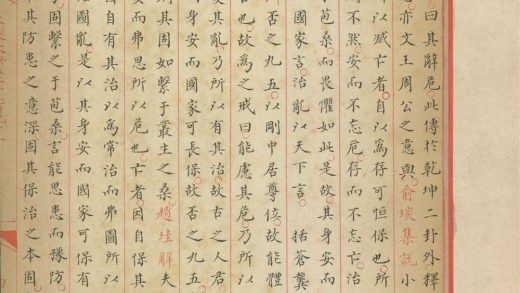 曰其辭危此傳於乾坤二卦外釋
亦文王周公之意與俞琰集說小
以滅亡者自以為存可恒保也所
不然安而不忘危存而不忘亡治
苞桑而畏懼如此是故其身安而
國家言治亂以天下言 括蒼龔
否之九五以剛中居尊位故能體
也故為之戒曰能慮其危乃所以
其亂乃所以有其治故古之人
身安而國家可長保故否之九五
其固如繫于叢生之桑趙珪解夫
安而弗思所以危也亡者因自保其
因自有其治以為常治而弗圖所以
治圖亂是以其身安而國家可保有
固繫之于苞桑言能思患而豫防
其防患之意深固其保治之本固